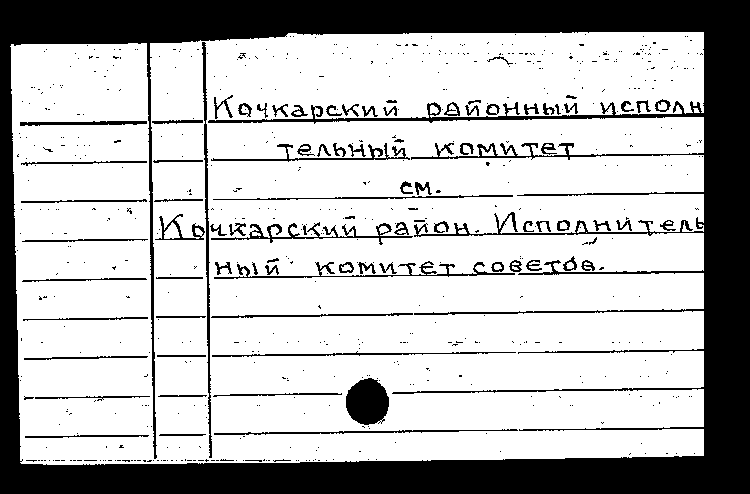 Кочкарский районный исполн
тельный комитет
см.
Кочкарский район. Исполнитель
ный комитет советов.